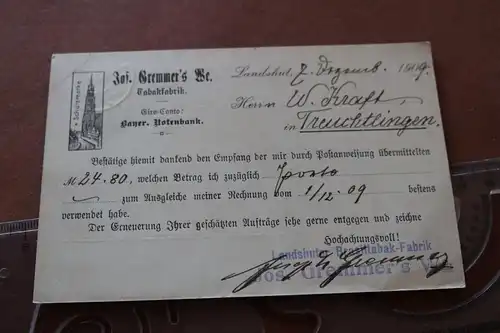 Schutzmarke
Jos. Gremmer's We.
Tabakfabrik.
Giro-Conto:
Bayer. Notenbank.
Landshut, 7. Dezemb. 1909.
Herrn W. Kraft,
in Treuchtlingen.
Bestätige hiemit dankend den Empfang der mir durch Postanweisung übermittelten
M 24.80, welchen Betrag ich zuzüglich Porto
zum Ausgleiche meiner Rechnung vom 1/12.09 bestens
verwendet habe.
Der Erneuerung Ihrer geschätzten Aufträge sehr gerne entgegen und zeichne
Hochachtungsvoll!
Landshuter Brasiltabak-Fabrik
Jos. Gremmer's We.